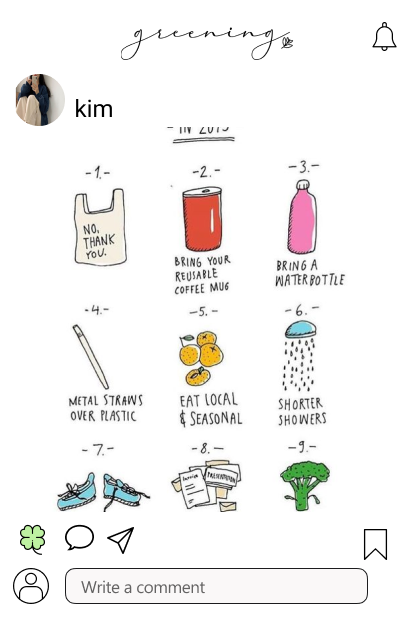 greening
kim
-1.-
-2.-
-3.-
NO,
THANK
YOU.
BRING YOUR
REUSABLE
COFFEE MUG
BRING A
WATERBOTTLE
-4.-
-5.-
-6.-
METAL STRAWS
OVER PLASTIC
EAT LOCAL
& SEASONAL
SHORTER
SHOWERS
-7.-
-8.-
-9.-
PRESENTATION
Write a comment